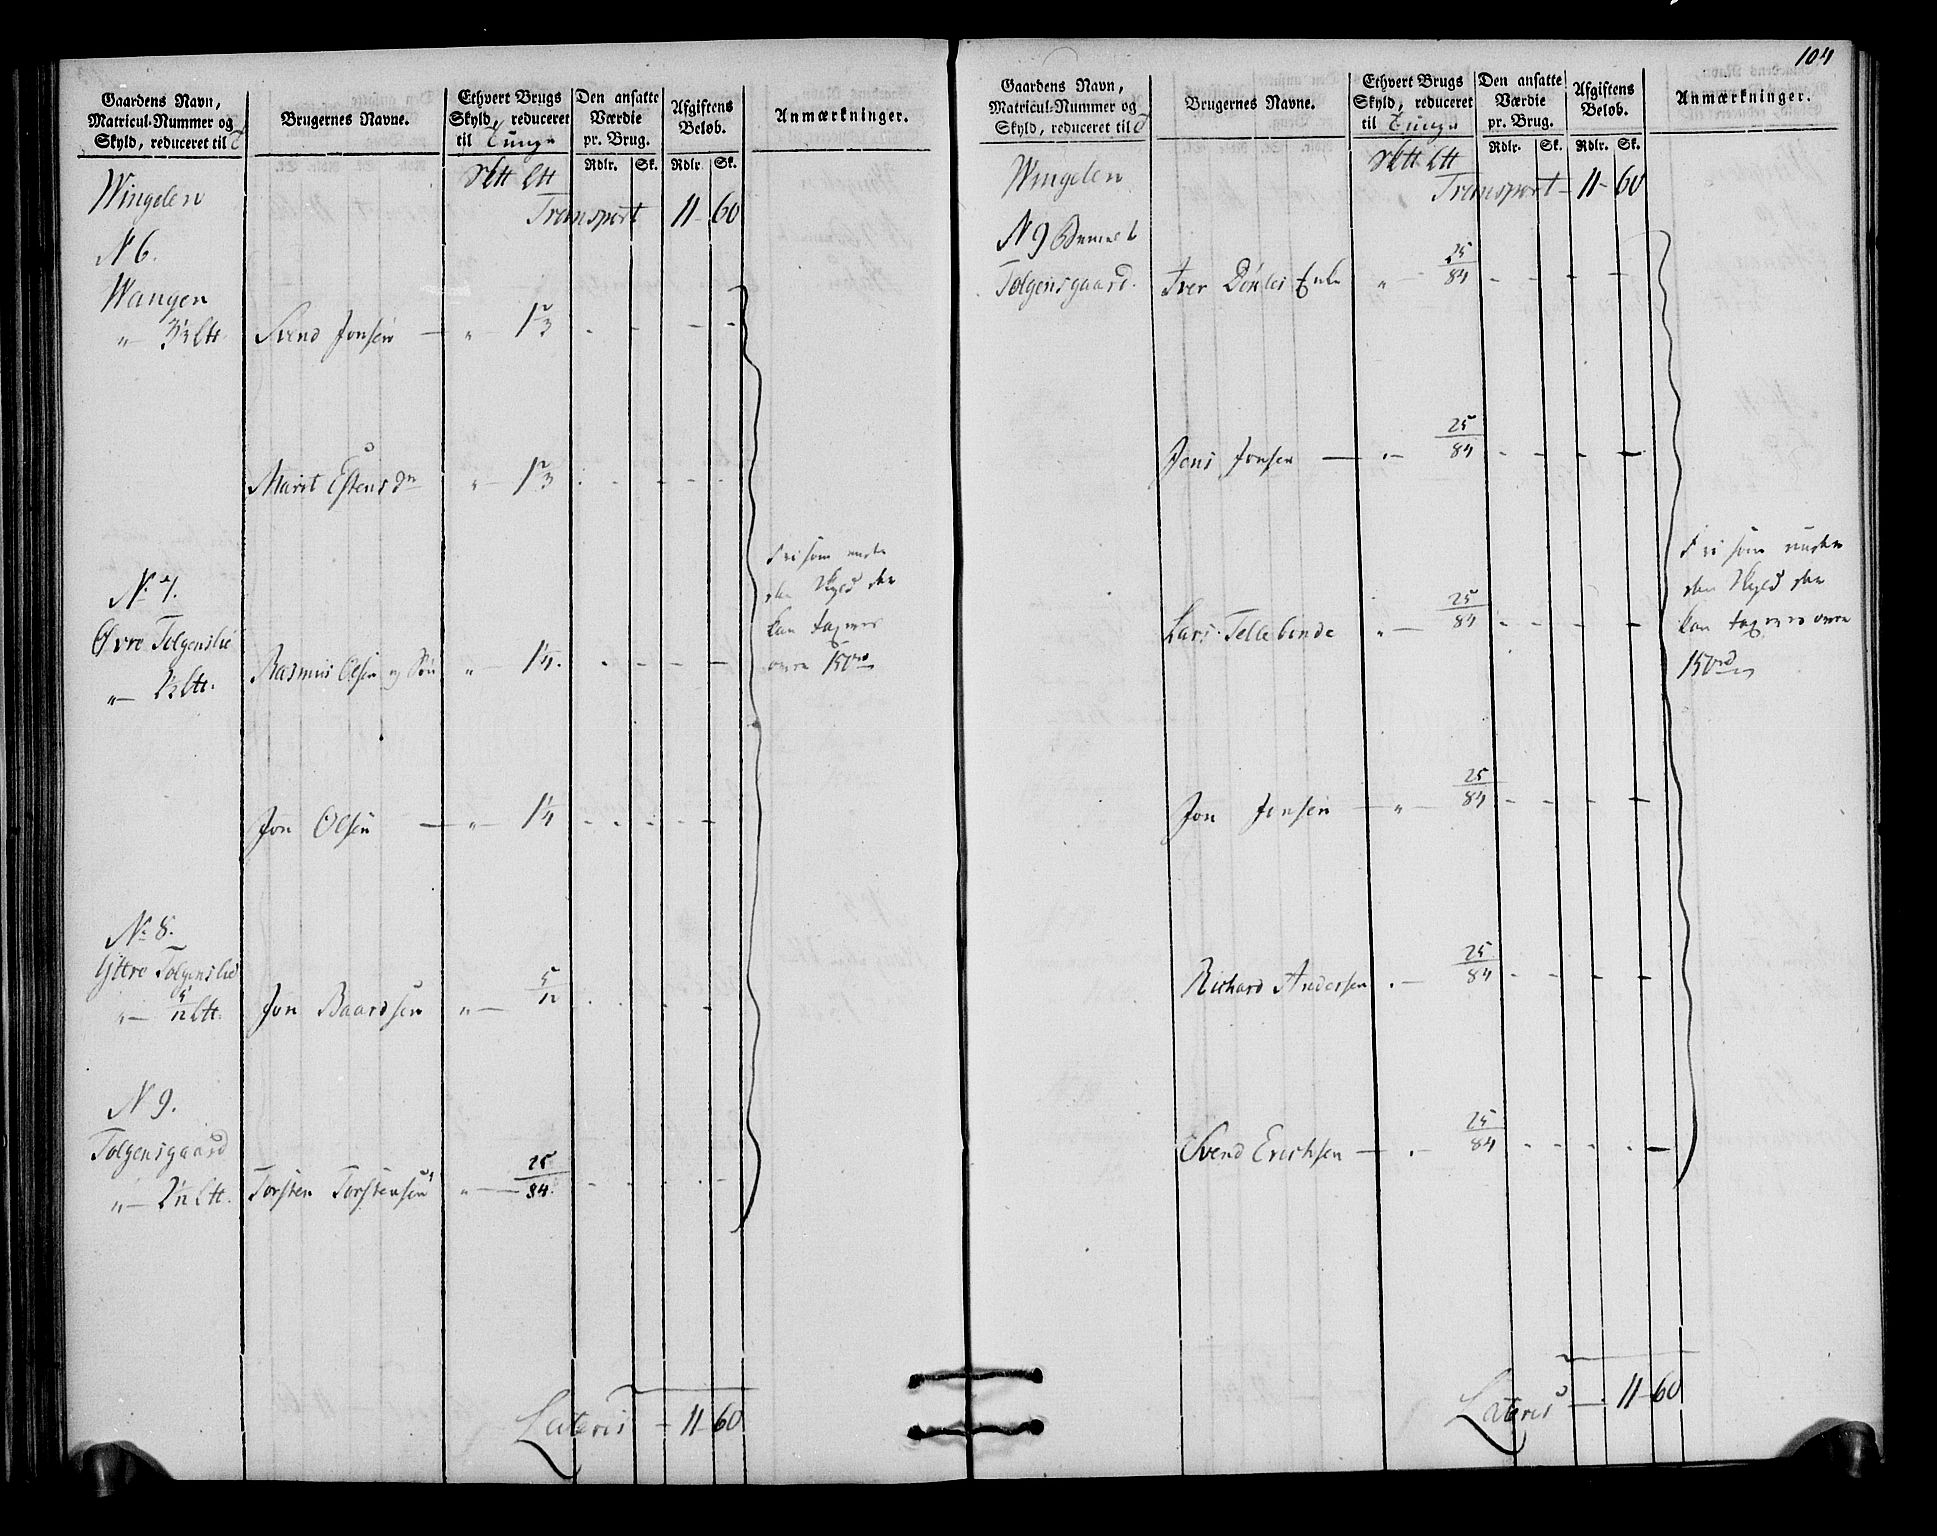 104
Gaardens Navn,
Matricul-Nummer og
Skyld, reduceret til
Brugernes Navne.
Ethvert Brugs
Skyld, reduceret
til Tunge
Den ansatte
Værdie
pr. Brug.
Rdlr. Sk.
Afgiftens
Beløb.
Rdlr. Sk.
Anmærkninger.
Wingelen
Transport 11 - 60
N 6.
Wangen
Svend Jonsen — „ —
Marit Estens
N: 7.
Øvre Tolgenslie
Rasmus Olsen og Søn „ — 1 1/4. - - - -
Jon Olsen — „ — 1 1/4 - - - -
Fri som
den Skyld der
kan taxeres
over 150
N: 8.
Yttre Tolgenslie
Jon Baardsen „ —
N 9.
Tolgensgaard
Torsten Torstensen „ — 25/84. - - - -
Lateris — 11 - 60
Gaardens Navn,
Matricul-Nummer og
Skyld, reduceret til
Brugernes Navne.
Ethvert Brugs
Skyld, reduceret
til Tunge
Den ansatte
Værdie
pr. Brug.
Rdlr. Sk.
Afgiftens
Beløb.
Rdlr. Sk.
Anmærkninger.
Wingelen
Transport — 11 - 60
N 9
Tolgensgaard.
Iver „ — 25/84 - - - -
Jens Jonsen — „ — 25/84 - - - -
Lars Tellebonde „ — 25/84 - - - -
Fri som
den Skyld der
kan taxeres over
150
Jon Jonsen — „ — 25/84 - - - -
Richard Andersen „ — 25/84 - - - -
Svend Erichsen — „ — 25/84 - - - -
Lateris — 11 - 60